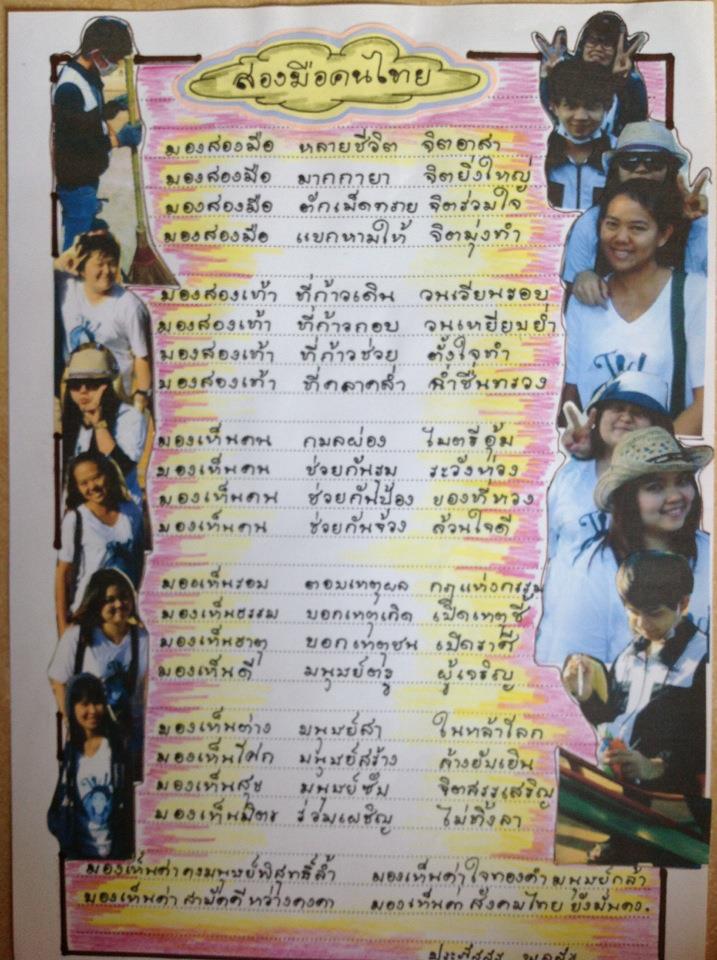 สองมือคนไทย
มองสองมือ หลายชีวิต จิตอาสา
มองสองมือ มากกายา จิตยิ่งใหญ่
มองสองมือ ตักเม็ดทราย จิตร่วมใจ
มองสองมือ แบกหามให้ จิตมุ่งทำ
มองสองเท้า ที่ก้าวเดิน วนเวียนรอบ
มองสองเท้า ที่ก้าวกอบ วนเหยียบย่ำ
มองสองเท้า ที่ก้าวช่วย ตั้งใจทำ
มองสองเท้า ที่คลาดล่ำ ฉ่ำชื่นทรวง
มองเห็นคน กมลผ่อง ไมตรีอุ้ม
มองเห็นคน ช่วยกันรุม ระวังห่วง
มองเห็นคน ช่วยกันป้อง ของที่หวง
มองเห็นคน ช่วยกันจ้วง ล้วนใจดี
มองเห็นรอม ตอบเหตุผล กฎแห่งกรรม
มองเห็นธรรม บอกเหตุเกิด เปิดเหตุชี้
มองเห็นธาตุ บอกเหตุชน เปิดราศี
มองเห็นดี มนุษย์ตรู ผู้เจริญ
มองเห็นต่าง มนุษย์สา ในหล้าโลก
มองเห็นโศก มนุษย์สร้าง ค้างยับเยิน
มองเห็นสุข มนุษย์ซับ จิตสรรเสริญ
มองเห็นมิตร ร่วมเผชิญ ไม่ทิ้งลา
มองเห็นค่า คงมนุษย์พิสุทธิ์ล้ำ มองเห็นค่า ใจทองคำ มนุษย์กล้า
มองเห็นค่า สามัคคี หว่างคงคา มองเห็นค่า สังคมไทย ยังมั่นคง.